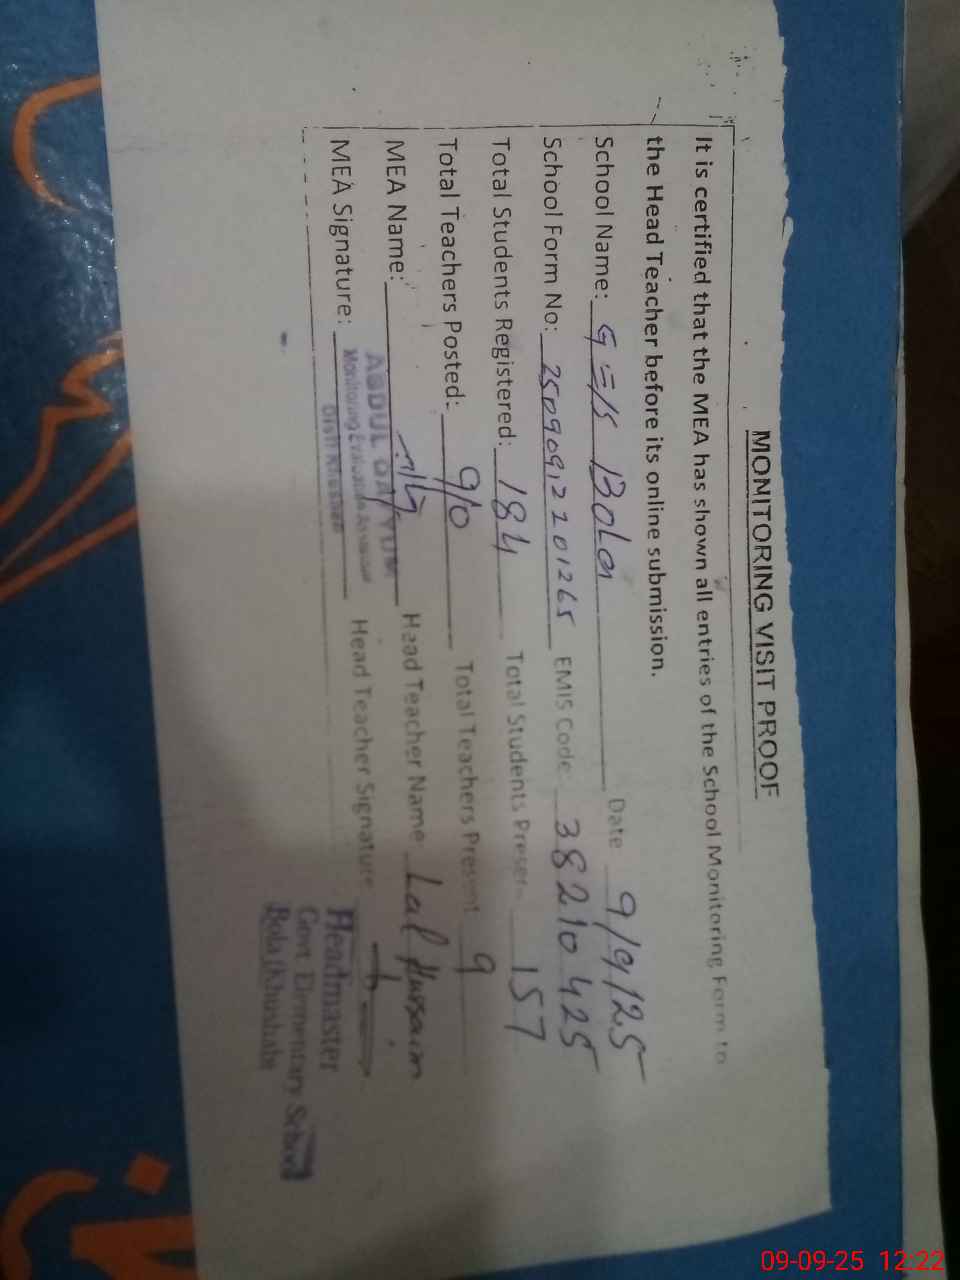 MONITORING VISIT PROOF
It is certified that the MEA has shown all entries of the School Monitoring Form to
the Head Teacher before its online submission.
School Name: G E/S Bola Date 9/9/25
School Form No: 25090912201265 EMIS Code: 38210425
Total Students Registered: 184 Total Students Presen 157
Total Teachers Posted: 9/0 Total Teachers Present 9
MEA Name: Head Teacher Name Lal Hussain
ABDUL QAYYUM
MEA Signature: Head Teacher Signature
Monitoring Evaluation Assistant
Distt Khushab
Headmaster
Govt. Elementary School
Bola (Khushab)
09-09-25 12:22